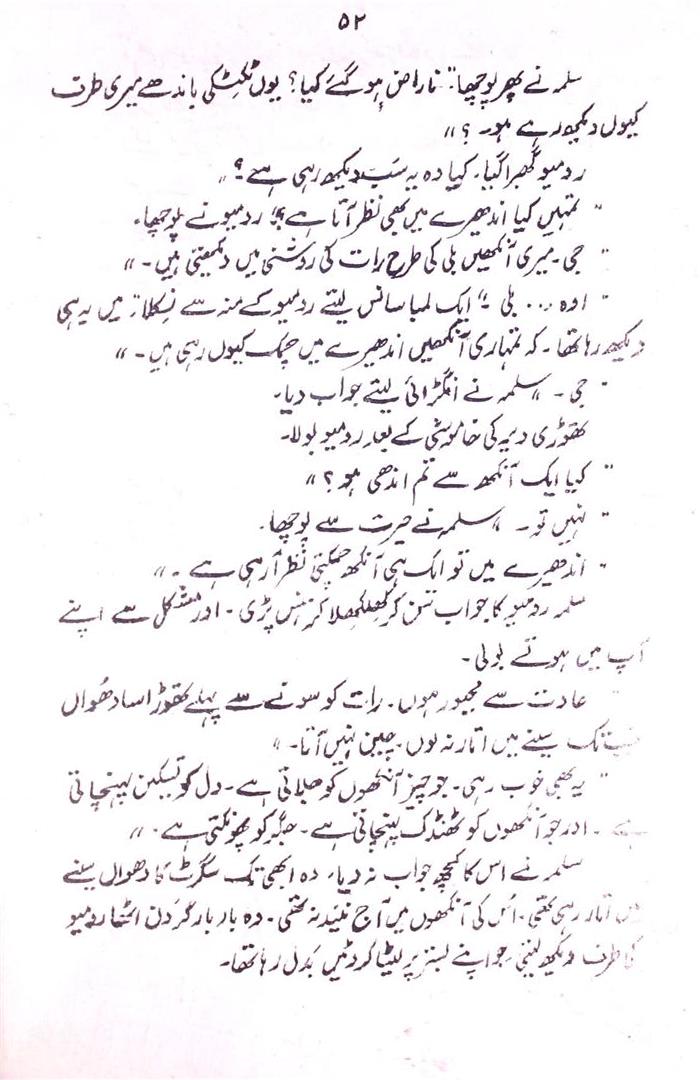 ۵۲
سلمہ نے پھر پوچھا۔ "ناراض ہو گئے کیا؟ یوں ٹکٹکی باندھے میری طرف
کیوں دیکھ رہے ہو۔ ؟"
ردمیو گھبرا گیا۔ کیا وہ یہ سب دیکھ رہی ہے؟"
"تمہیں کیا اندھیرے میں بھی نظر آتا ہے؟" ردمیو نے پوچھا۔
"جی۔ میری آنکھیں بلی کی طرح رات کی روشنی میں دیکھتی ہیں۔"
"اوہ ... بلی !" ایک لمبا سانس لیتے ردمیو کے منہ سے نکلا۔ "میں یہ ہی
دیکھ رہا تھا۔ کہ تمہاری آنکھیں اندھیرے میں چمک کیوں رہی ہیں۔"
"جی۔" سلمہ نے انگڑائی لیتے جواب دیا۔
تھوڑی دیر کی خاموشی کے بعد ردمیو بولا۔
"کیا ایک آنکھ سے تم اندھی ہو؟"
"نہیں تو۔" سلمہ نے حیرت سے پوچھا۔
"اندھیرے میں تو ایک ہی آنکھ چمکتی نظر آ رہی ہے۔"
سلمہ ردمیو کا جواب سن کر کھلکھلا کر ہنس پڑی۔ اور مشکل سے اپنے
آپ میں ہوتے بولی۔
"عادت سے مجبور ہوں۔ رات کو سونے سے پہلے تھوڑا سا دھُواں
جب تک سینے میں اتار نہ لوں۔ چین نہیں آتا۔"
"یہ بھی خوب رہی۔ جو چیز آنکھوں کو جلاتی ہے۔ دل کو تسکین پہنچاتی
ہے۔ اور جو آنکھوں کو ٹھنڈک پہنچاتی ہے۔ جگر کو پھونکتی ہے۔"
سلمہ نے اس کا کچھ جواب نہ دیا۔ وہ ابھی تک سگرٹ کا دھواں سینے
میں اتار رہی تھی۔ اُس کی آنکھوں میں آج نیند نہ تھی۔ وہ بار بار گردن اٹھا ردمیو
کی طرف دیکھ لیتی۔ جو اپنے بستر پر لیٹا کروٹیں بدل رہا تھا۔